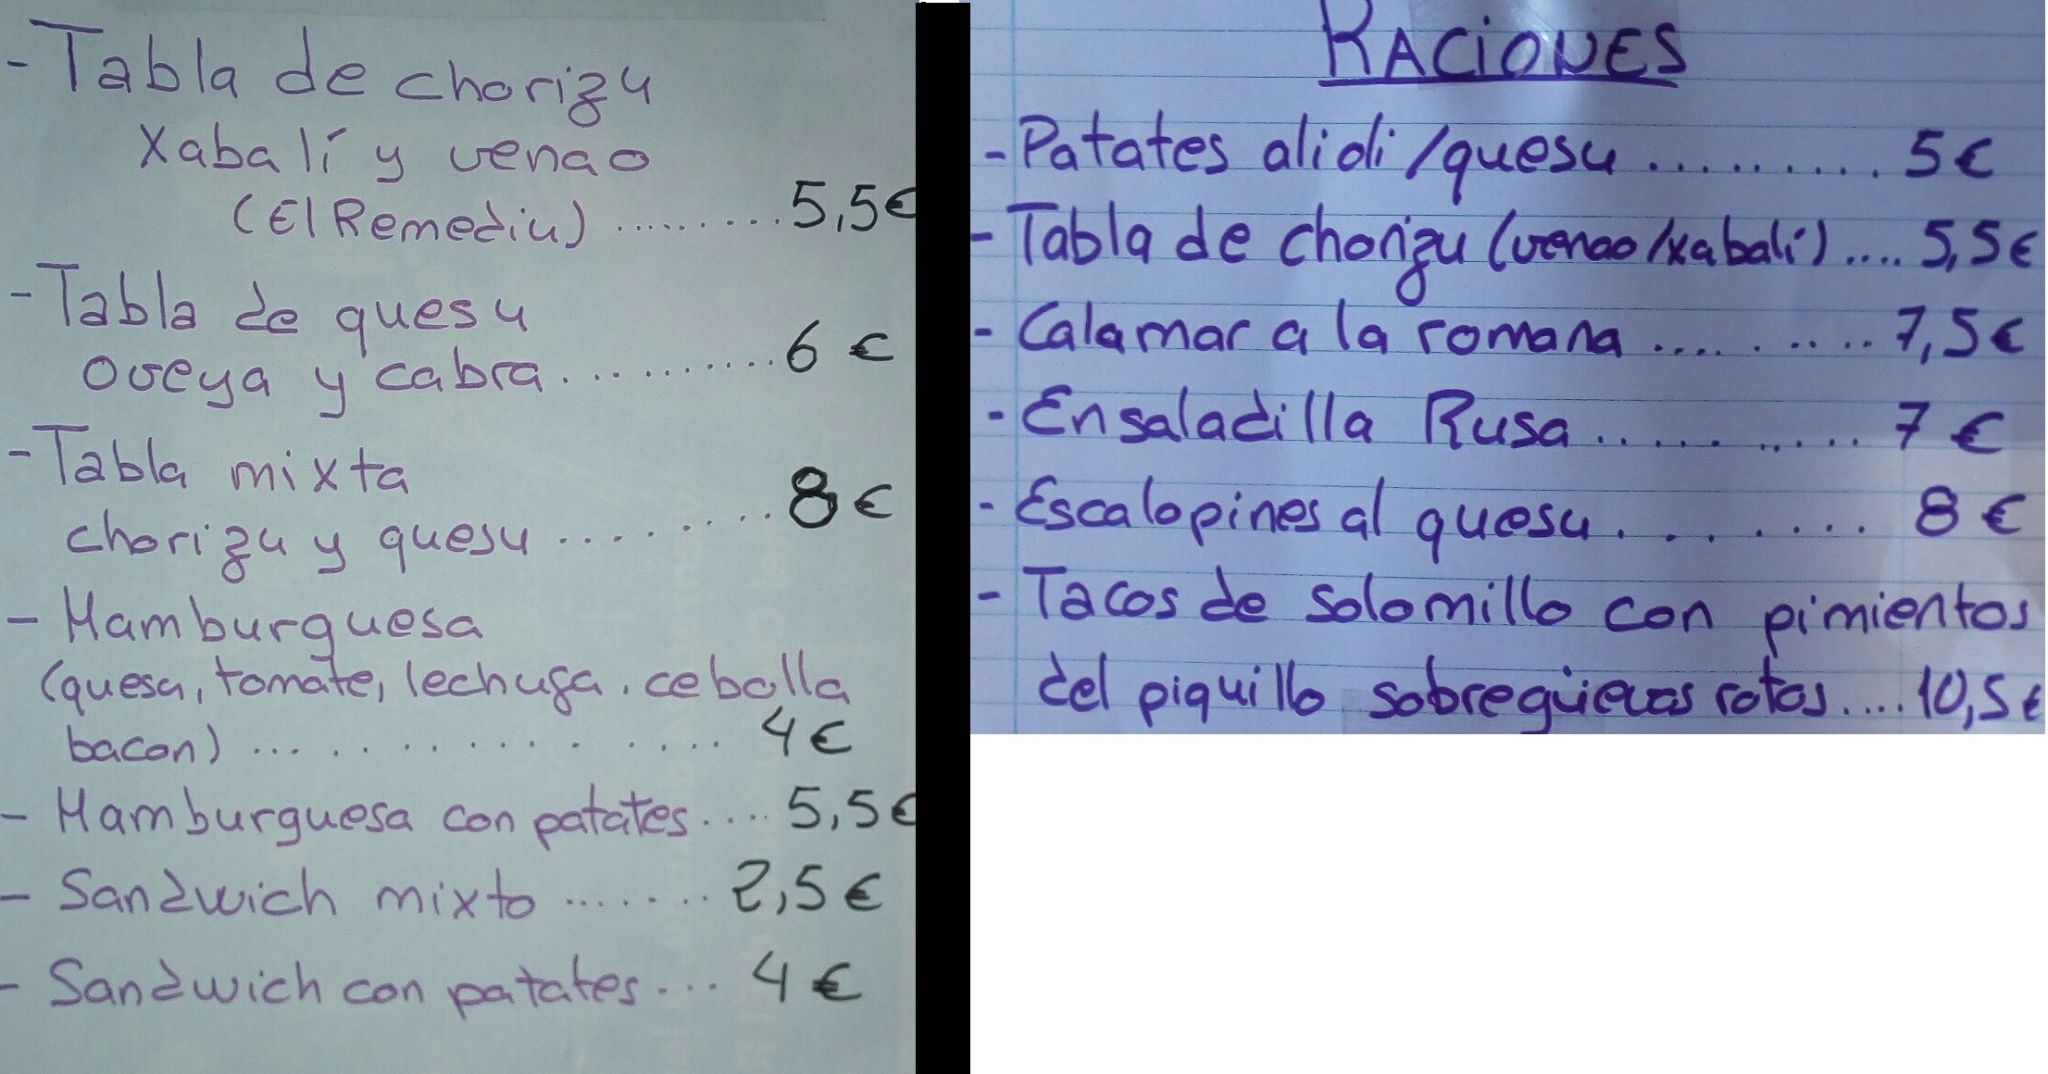 - Tabla de chorizu
xabalí y venao
(El Remediu) ......... 5,5€
- Tabla de quesu
oveya y cabra .......... 6 €
- Tabla mixta
chorizu y quesu ........ 8 €
- Hamburguesa
(quesu, tomate, lechuga, cebolla
bacon) ............ 4€
- Hamburguesa con patates .... 5,5€
- Sandwich mixto ....... 2,5 €
- Sandwich con patates ... 4 €
RACIONES
- Patates alioli/quesu .......... 5€
- Tabla de chorizu (venao/xabalí) .... 5,5€
- Calamar a la romana .......... 7,5€
- Ensaladilla Rusa ........... 7 €
- Escalopines al quesu ........ 8 €
- Tacos de solomillo con pimientos
del piquillo sobre güevos rotos .... 10,5€